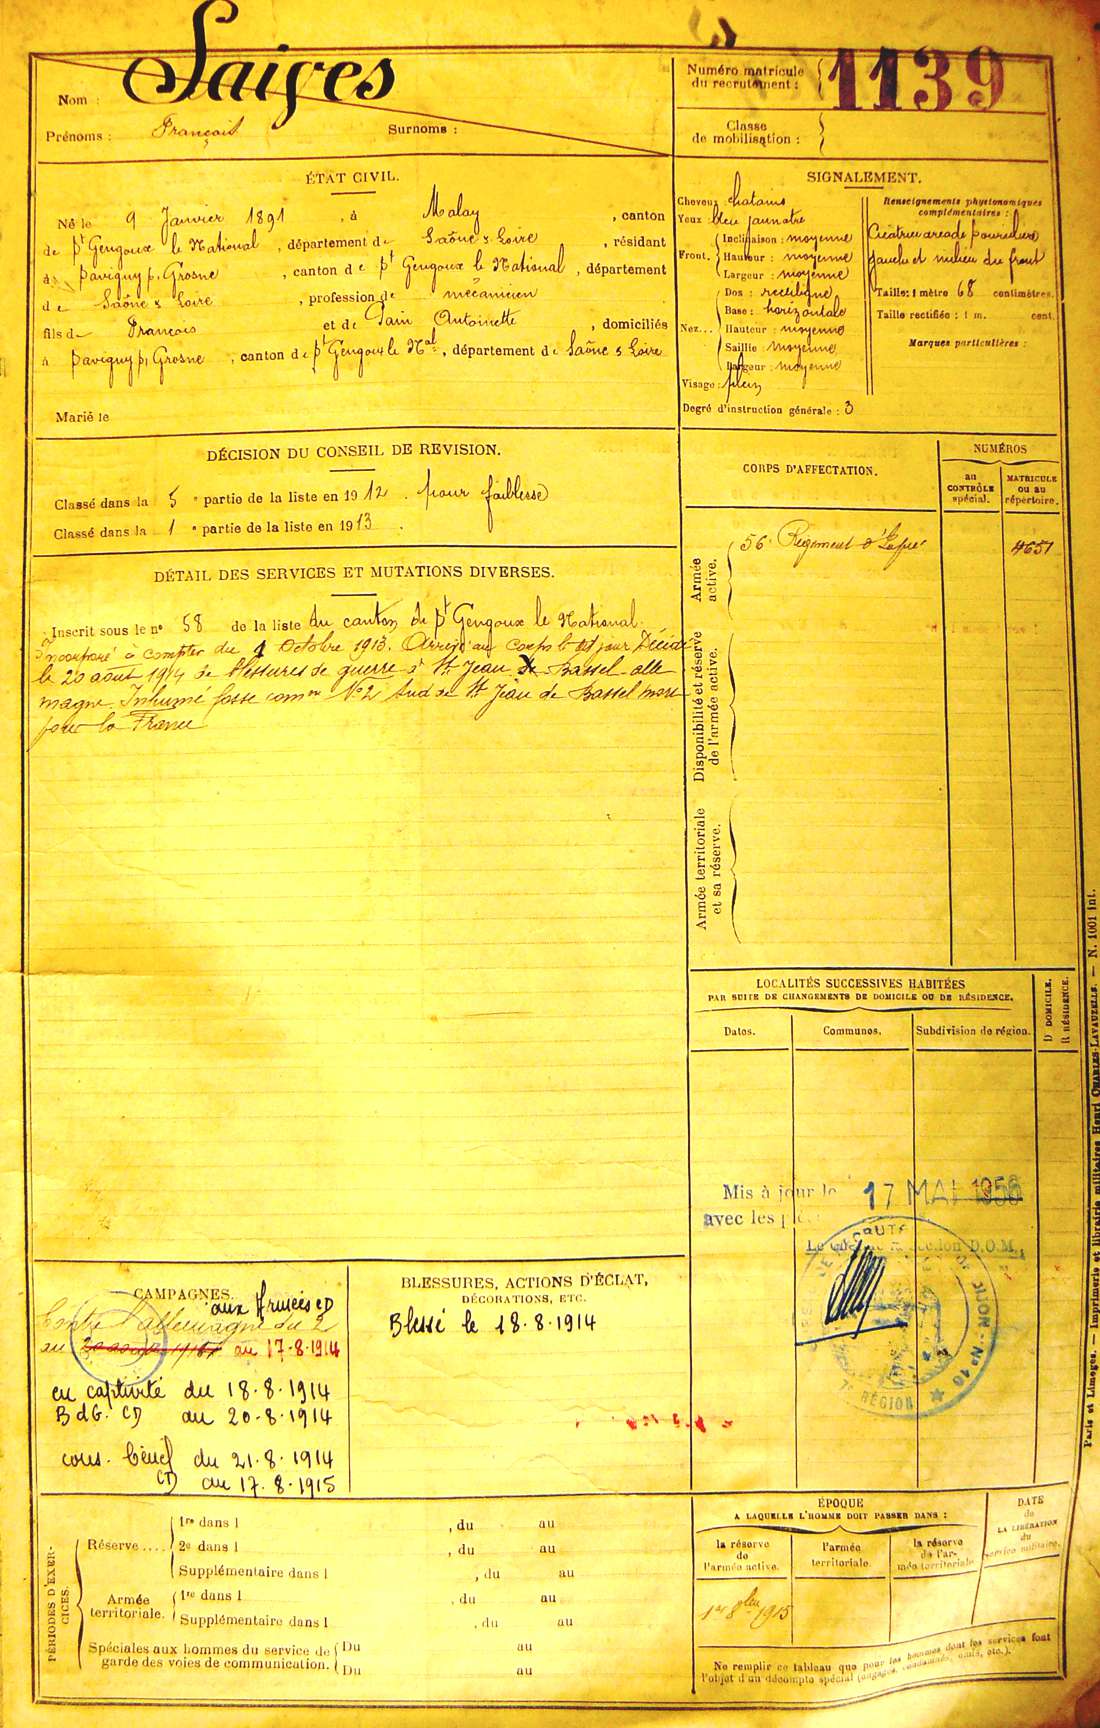 Nom : Saives
Prénoms : François Surnoms :
Numéro matricule
du recrutement : 1139
Classe
de mobilisation :
ÉTAT CIVIL.
Né le 9 Janvier 1891, à Malay, canton
de St Gengoux le National, département de Saône & Loire, résidant
à Savigny s, Grosne, canton de St Gengoux le National, département
de Saône & Loire, profession de mécanicien
fils de François et de Pain Antoinette, domiciliés
à Savigny s, Grosne, canton de St Gengoux le Nal, département de Saône & Loire
Marié le
SIGNALEMENT.
Cheveux : chatains
Yeux : bleu jaunatre
Front. Inclinaison : moyenne
Hauteur : moyenne
Largeur : moyenne
Nez... Dos : rectiligne
Base : horizontale
Hauteur : moyenne
Saillie : moyenne
Largeur : moyenne
Visage : plein
Degré d'instruction générale : 3
Renseignements physionomiques
complémentaires :
Cicatrice arcade sourcilière
gauche et milieu du front
Taille : 1 mètre 68 centimètres.
Taille rectifiée : 1 m. cent.
Marques particulières :
DÉCISION DU CONSEIL DE REVISION.
Classé dans la 5e partie de la liste en 1912. pour faiblesse
Classé dans la 1e partie de la liste en 1913.
DÉTAIL DES SERVICES ET MUTATIONS DIVERSES.
Inscrit sous le no 58 de la liste du canton de St Gengoux le National.
Incorporé à compter du 1 Octobre 1913. Arrivé au corps le dt jour Décédé
le 20 août 1914 de blessures de guerre à St Jean de Bassel alle
magne. Inhumé fosse comne No 2 Sud de St Jean de Bassel mort
pour la France
CORPS D'AFFECTATION.
NUMÉROS
au
CONTRÔLE
spécial.
MATRICULE
ou au
répertoire.
Armée
active.
56e Régiment d'Infie
4651
Disponibilité et réserve
de l'armée active.
Armée territoriale
et sa réserve.
LOCALITÉS SUCCESSIVES HABITÉES
PAR SUITE DE CHANGEMENTS DE DOMICILE OU DE RÉSIDENCE.
Dates. Communes. Subdivision de région.
D DOMICILE.
R RÉSIDENCE.
Mis à jour le 17 MAI 1956
avec les
DIJON - No 10
RÉGION
CAMPAGNES.
aux Armées CD
Contre l'allemagne du 2
au 20 août 1914 au 17-8-1914
en captivité du 18-8-1914
BdG. CD au 20-8-1914
cons. bénéf du 21-8-1914
CD au 17-8-1915
BLESSURES, ACTIONS D'ÉCLAT,
DÉCORATIONS, ETC.
Blessé le 18-8-1914
PÉRIODES D'EXER-
CICES.
Réserve.... 1re dans l , du au
2e dans l , du au
Supplémentaire dans l , du au
Armée
territoriale. 1re dans l , du au
Supplémentaire dans l , du au
Spéciales aux hommes du service de
garde des voies de communication. Du au
Du au
ÉPOQUE
A LAQUELLE L'HOMME DOIT PASSER DANS :
la réserve
de
l'armée active.
l'armée
territoriale.
la réserve
de l'ar-
mée territoriale
DATE
de
LA LIBÉRATION
du
service militaire.
1er 8bre 1915
Ne remplir ce tableau que pour les hommes dont les services font
l'objet d'un décompte spécial (engagés, condamnés, omis, etc.).
Paris et Limoges. — Imprimerie et librairie militaires Henri CHARLES-LAVAUZELLE. — N. 1001 int.